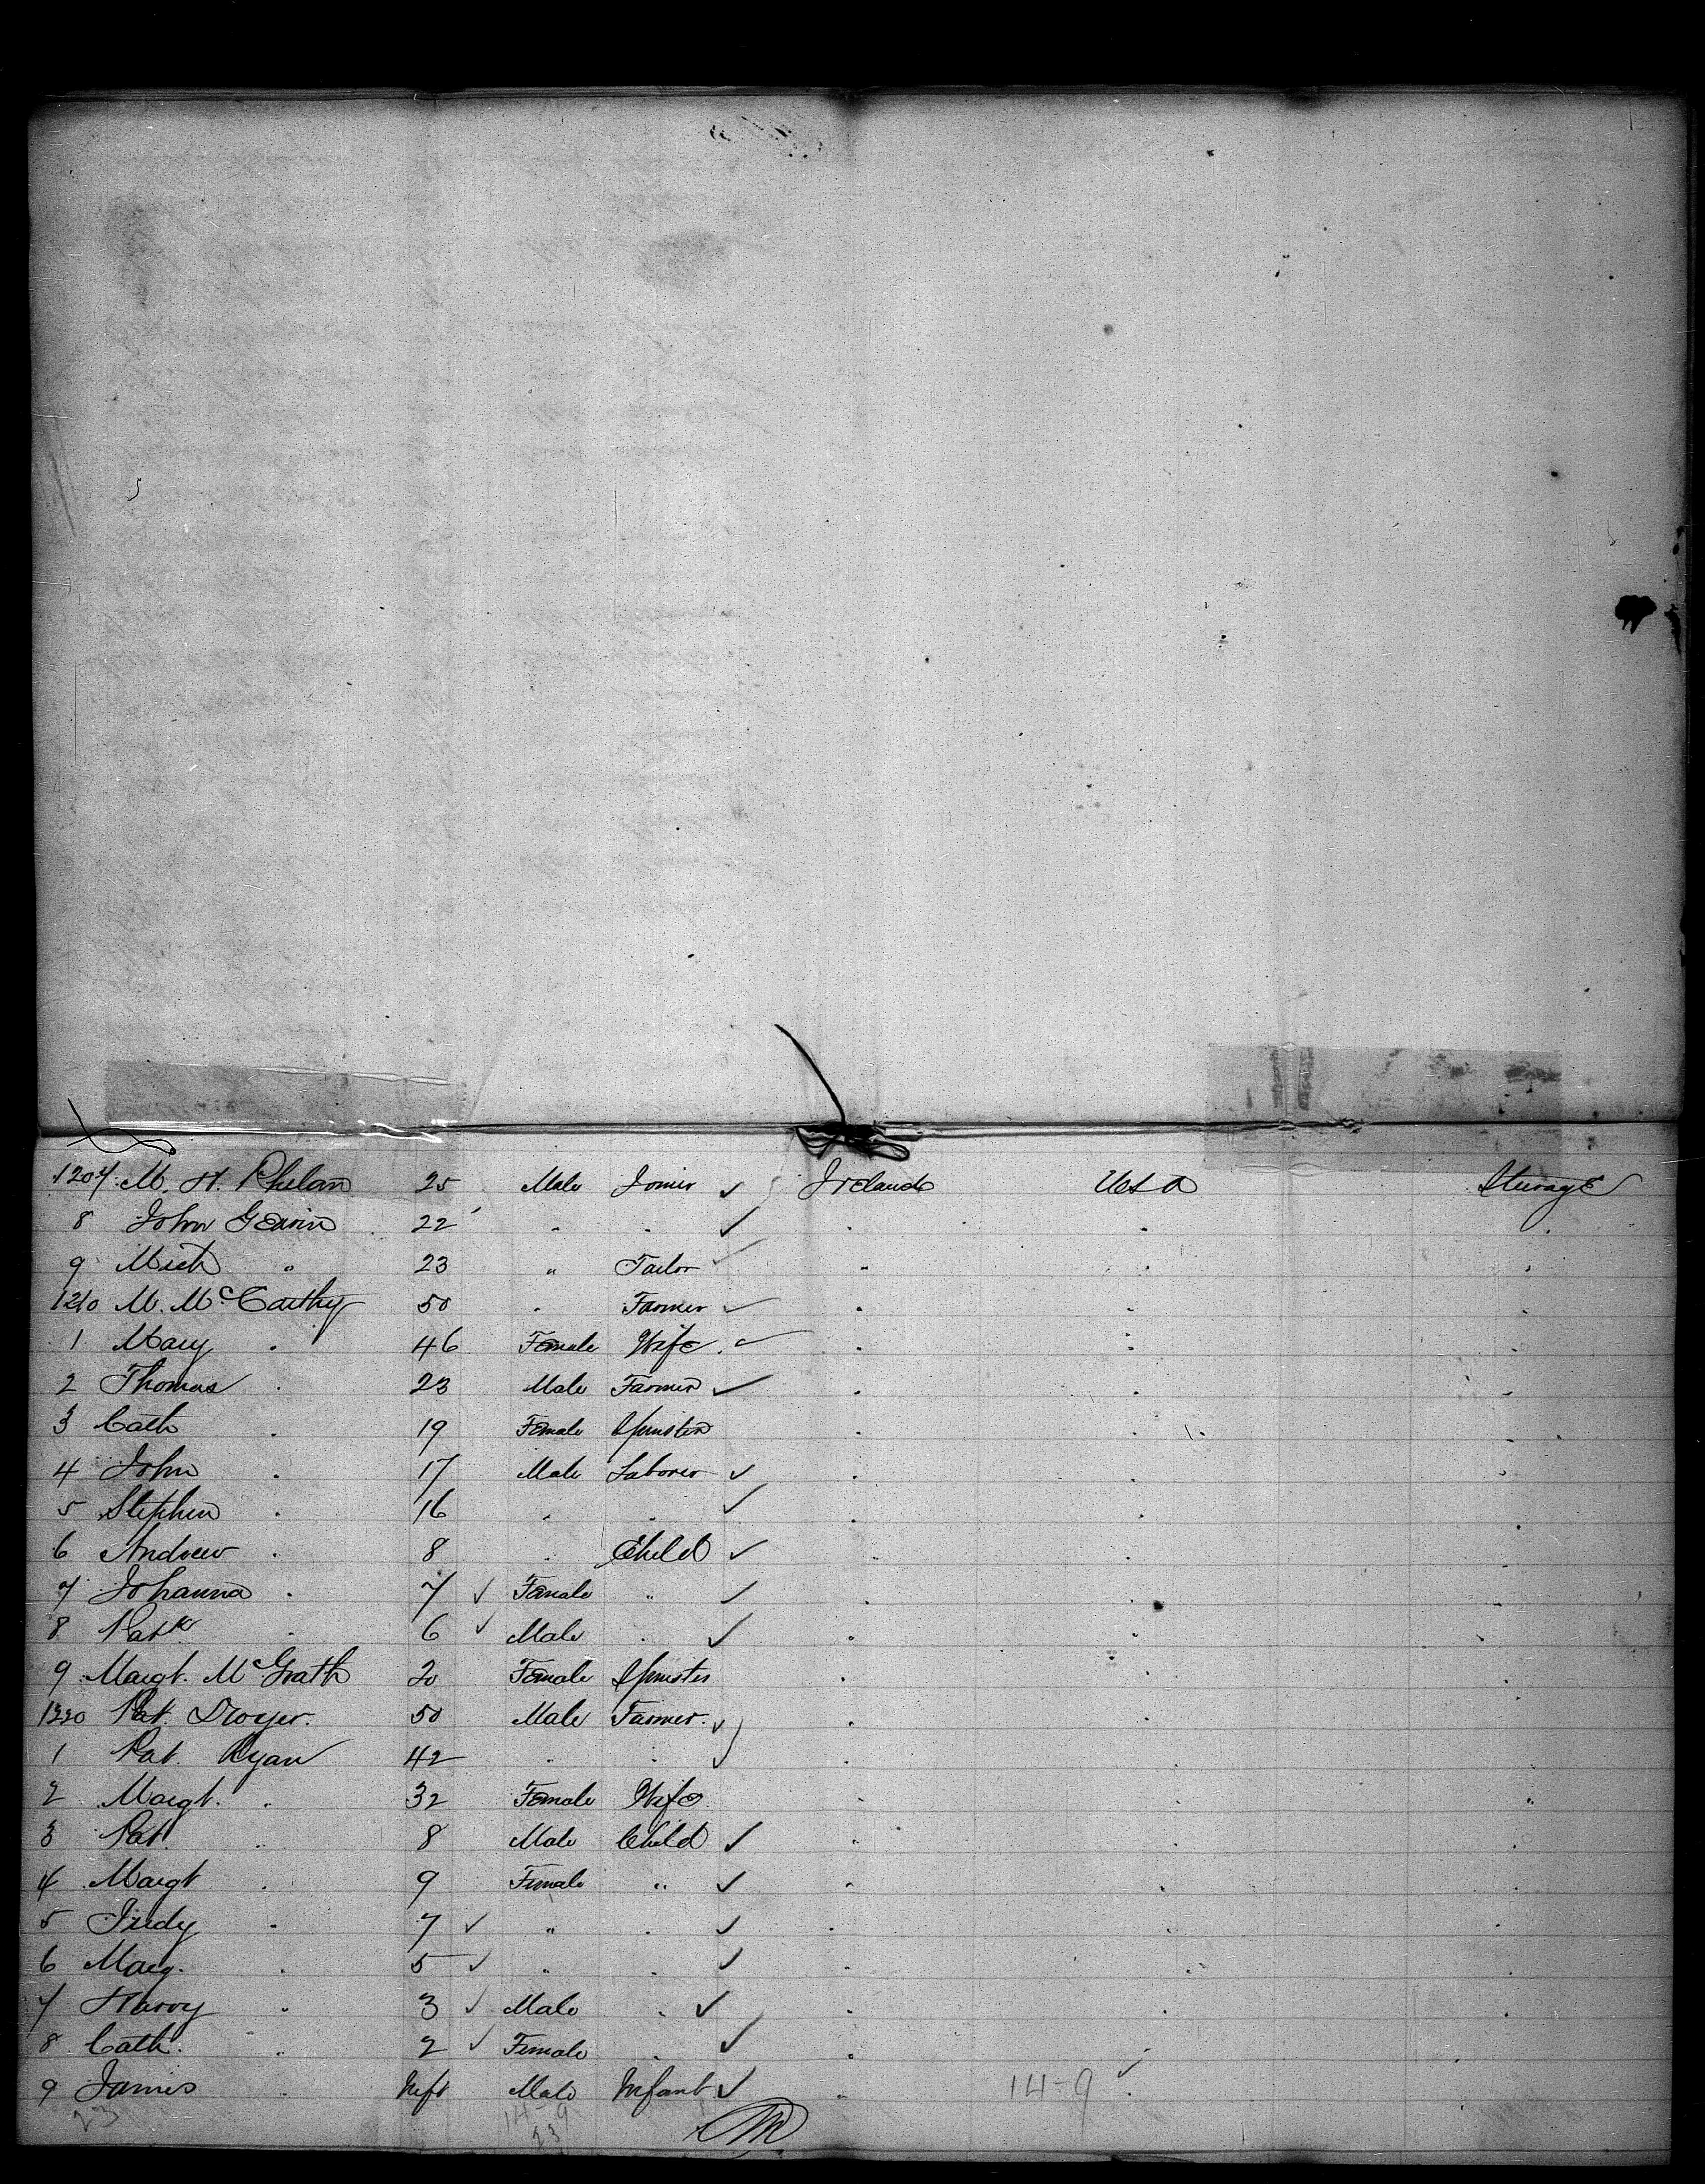 1207 M. H. Phelan 25 Male Joiner ✓ Ireland USA Steerage
8 John Gervin 22 " " ✓ " " "
9 Mich " 23 " Tailor ✓ " " "
1210 M. McCarthy 50 " Farmer ✓ " " "
1 Mary " 46 Female Wife ✓ " " "
2 Thomas " 23 Male Farmer ✓ " " "
3 Cath " 19 Female Spinster " " "
4 John " 17 Male Laborer ✓ " " "
5 Stephen " 16 " " ✓ " " "
6 Andrew " 8 " Child ✓ " " "
7 Johanna " 7 ✓ Female " ✓ " " "
8 Patk " 6 ✓ Male " ✓ " " "
9 Margt. McGrath 20 Female Spinster " " "
1220 Pat. Dwyer. 50 Male Farmer. ✓ " " "
1 Pat. Ryan 42 " " ✓ " " "
2 Margt. " 32 Female Wife " " "
3 Pat. " 8 Male Child ✓ " " "
4 Margt " 9 Female " ✓ " " "
5 Judy " 7 ✓ " " ✓ " " "
6 Mary. " 5 ✓ " " ✓ " " "
7 Harry " 3 ✓ Male " ✓ " " "
8 Cath. " 2 ✓ Female " ✓ " " "
9 James " Inft Male Infant ✓ " 14-9 ✓ "
23 14-9
23